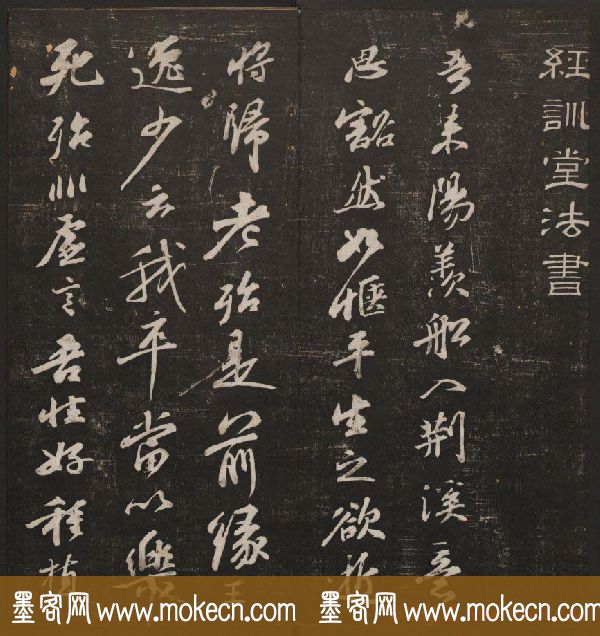 經訓堂法書
吾来陽羨船入荆溪意
思豁然如愜平生之欲逝
将歸老殆是前緣王
逸少云我卒當以樂
死殆非虛言吾性好種植
墨客网 www.mokecn.com 墨客网 www.mokecn.com